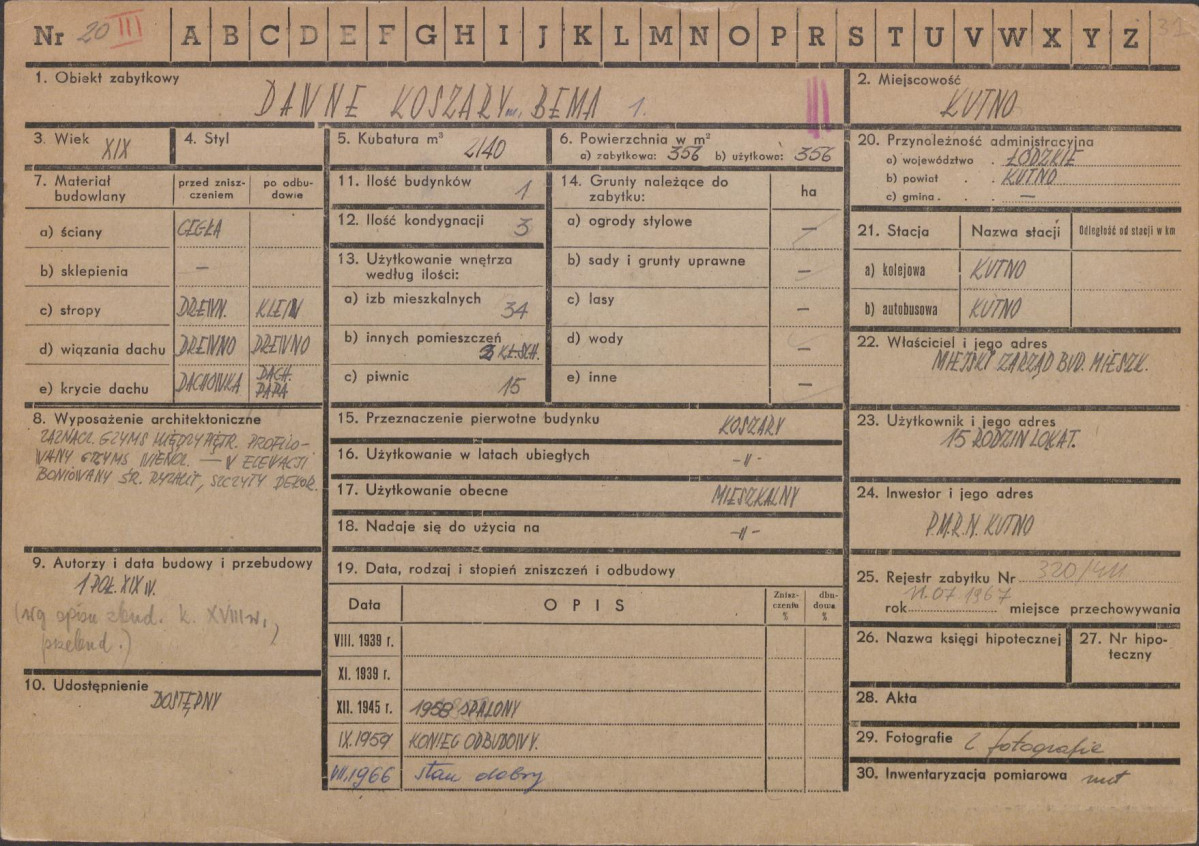 Nr 20 III A B C D E F G H I J K L M N O P R S T U V W X Y Z 31
1. Obiekt zabytkowy
DAWNE KOSZARY ul. BEMA 1.
2. Miejscowość
KUTNO
3. Wiek
XIX
4. Styl
5. Kubatura m³
2140
6. Powierzchnia w m²
a) zabytkowa: 356 b) użytkowa: 356
20. Przynależność administracyjna
a) województwo . ŁÓDZKIE
b) powiat . . KUTNO
c) gmina . . . —
7. Materiał budowlany
przed zniszczeniem
po odbudowie
a) ściany CEGŁA
b) sklepienia —
c) stropy DREWN. KLEIN
d) wiązania dachu DREWNO DREWNO
e) krycie dachu DACHÓWKA DACH. PAPA
11. Ilość budynków 1
12. Ilość kondygnacji 3
13. Użytkowanie wnętrza
według ilości:
a) izb mieszkalnych 34
b) innych pomieszczeń
2 KL.SCH.
c) piwnic 15
14. Grunty należące do
zabytku:
ha
a) ogrody stylowe —
b) sady i grunty uprawne —
c) lasy —
d) wody —
e) inne —
21. Stacja Nazwa stacji Odległość od stacji w km
a) kolejowa KUTNO
b) autobusowa KUTNO
22. Właściciel i jego adres
MIEJSKI ZARZĄD BUD. MIESZK.
8. Wyposażenie architektoniczne
ZAZNACZ. GZYMS MIĘDZYPIĘTR. PROFILO-
WANY GZYMS WIEŃCZ. — W ELEWACJI
BONIOWANY ŚR. RYZALIT, SZCZYTY DEKOR.
15. Przeznaczenie pierwotne budynku KOSZARY
16. Użytkowanie w latach ubiegłych -„-
17. Użytkowanie obecne MIESZKALNY
18. Nadaje się do użycia na -„-
23. Użytkownik i jego adres
15 RODZIN LOKAT.
24. Inwestor i jego adres
P.M.R.N. KUTNO
9. Autorzy i data budowy i przebudowy
1 POŁ. XIX W.
(wg opisu zbud. k. XVIII w.,
przebud.)
10. Udostępnienie
DOSTĘPNY
19. Data, rodzaj i stopień zniszczeń i odbudowy
Data OPIS Zniszczenia % dbudowa %
VIII. 1939 r.
XI. 1939 r.
XII. 1945 r. 1958 SPALONY
IX.1959 KONIEC ODBUDOWY.
VII.1966 stan dobry
25. Rejestr zabytku Nr 320/
rok 11.07.1967 miejsce przechowywania
26. Nazwa księgi hipotecznej
27. Nr hipo-
teczny
28. Akta
29. Fotografie 2 fotografie
30. Inwentaryzacja pomiarowa